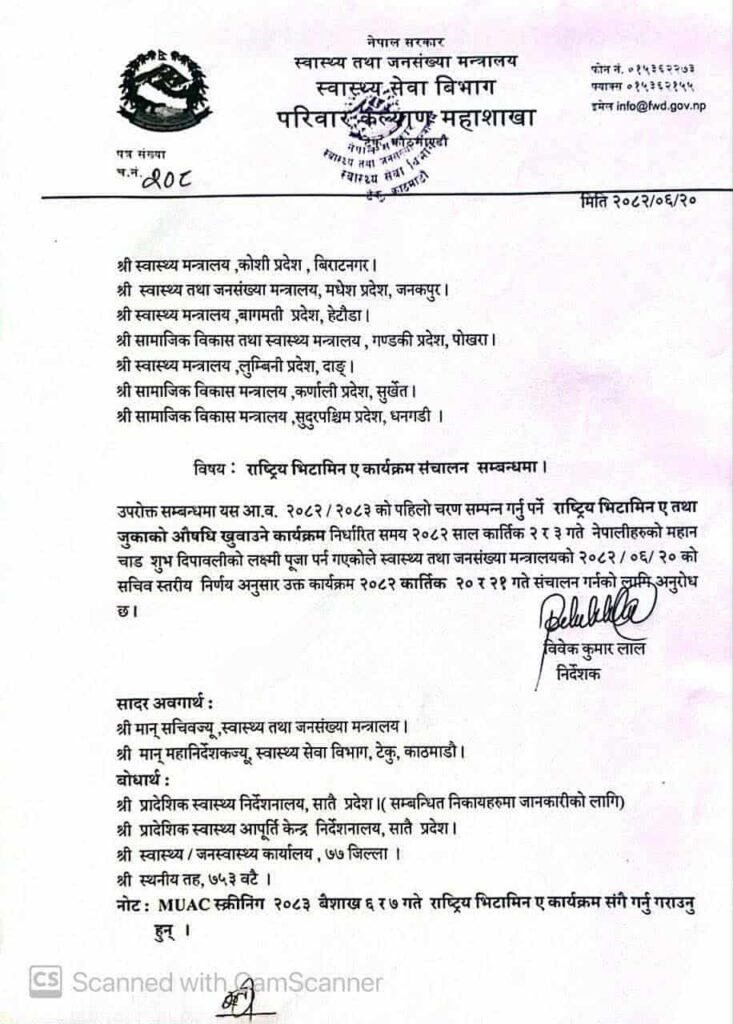 नेपाल सरकार
स्वास्थ्य तथा जनसंख्या मन्त्रालय
स्वास्थ्य सेवा विभाग
परिवार कल्याण महाशाखा
टेकु, काठमाण्डौ
फोन नं. ०१५३६२२७३
फ्याक्स ०१५३६२१५५
इमेल info@fwd.gov.np
नेपाल सरकार
स्वास्थ्य तथा जनसंख्या
स्वास्थ्य सेवा विभाग
टेकु, काठमाडौं
पत्र संख्या
च.नं. २०८
मिति २०८२/०६/२०
श्री स्वास्थ्य मन्त्रालय ,कोशी प्रदेश , बिराटनगर।
श्री स्वास्थ्य तथा जनसंख्या मन्त्रालय, मधेश प्रदेश, जनकपुर।
श्री स्वास्थ्य मन्त्रालय ,बागमती प्रदेश, हेटौडा।
श्री सामाजिक विकास तथा स्वास्थ्य मन्त्रालय , गण्डकी प्रदेश, पोखरा।
श्री स्वास्थ्य मन्त्रालय ,लुम्बिनी प्रदेश, दाङ्।
श्री सामाजिक विकास मन्त्रालय ,कर्णाली प्रदेश, सुर्खेत।
श्री सामाजिक विकास मन्त्रालय ,सुदुरपश्चिम प्रदेश, धनगडी ।
विषय : राष्ट्रिय भिटामिन ए कार्यक्रम संचालन सम्बन्धमा।
उपरोक्त सम्बन्धमा यस आ.व. २०८२ / २०८३ को पहिलो चरण सम्पन्न गर्नु पर्ने राष्ट्रिय भिटामिन ए तथा
जुकाको औषधि खुवाउने कार्यक्रम निर्धारित समय २०८२ साल कार्तिक २ र ३ गते नेपालीहरुको महान
चाड शुभ दिपावलीको लक्ष्मी पूजा पर्न गएकोले स्वास्थ्य तथा जनसंख्या मन्त्रालयको २०८२ / ०६/ २० को
सचिव स्तरीय निर्णय अनुसार उक्त कार्यक्रम २०८२ कार्तिक २० र २१ गते संचालन गर्नको लागि अनुरोध
छ।
विवेक कुमार लाल
निर्देशक
सादर अवगार्थ :
श्री मान् सचिवज्यू ,स्वास्थ्य तथा जनसंख्या मन्त्रालय।
श्री मान् महानिर्देशकज्यू, स्वास्थ्य सेवा विभाग, टेकु, काठमाडौ।
बोधार्थ :
श्री प्रादेशिक स्वास्थ्य निर्देशनालय, सातै प्रदेश।( सम्बन्धित निकायहरुमा जानकारीको लागि)
श्री प्रादेशिक स्वास्थ्य आपूर्ति केन्द्र निर्देशनालय, सातै प्रदेश।
श्री स्वास्थ्य / जनस्वास्थ्य कार्यालय , ७७ जिल्ला ।
श्री स्थनीय तह, ७५३ वटै ।
नोट : MUAC स्क्रीनिंग २०८३ बैशाख ६ र ७ गते राष्ट्रिय भिटामिन ए कार्यक्रम संगै गर्नु गराउनु
हुन् ।
CS Scanned with CamScanner